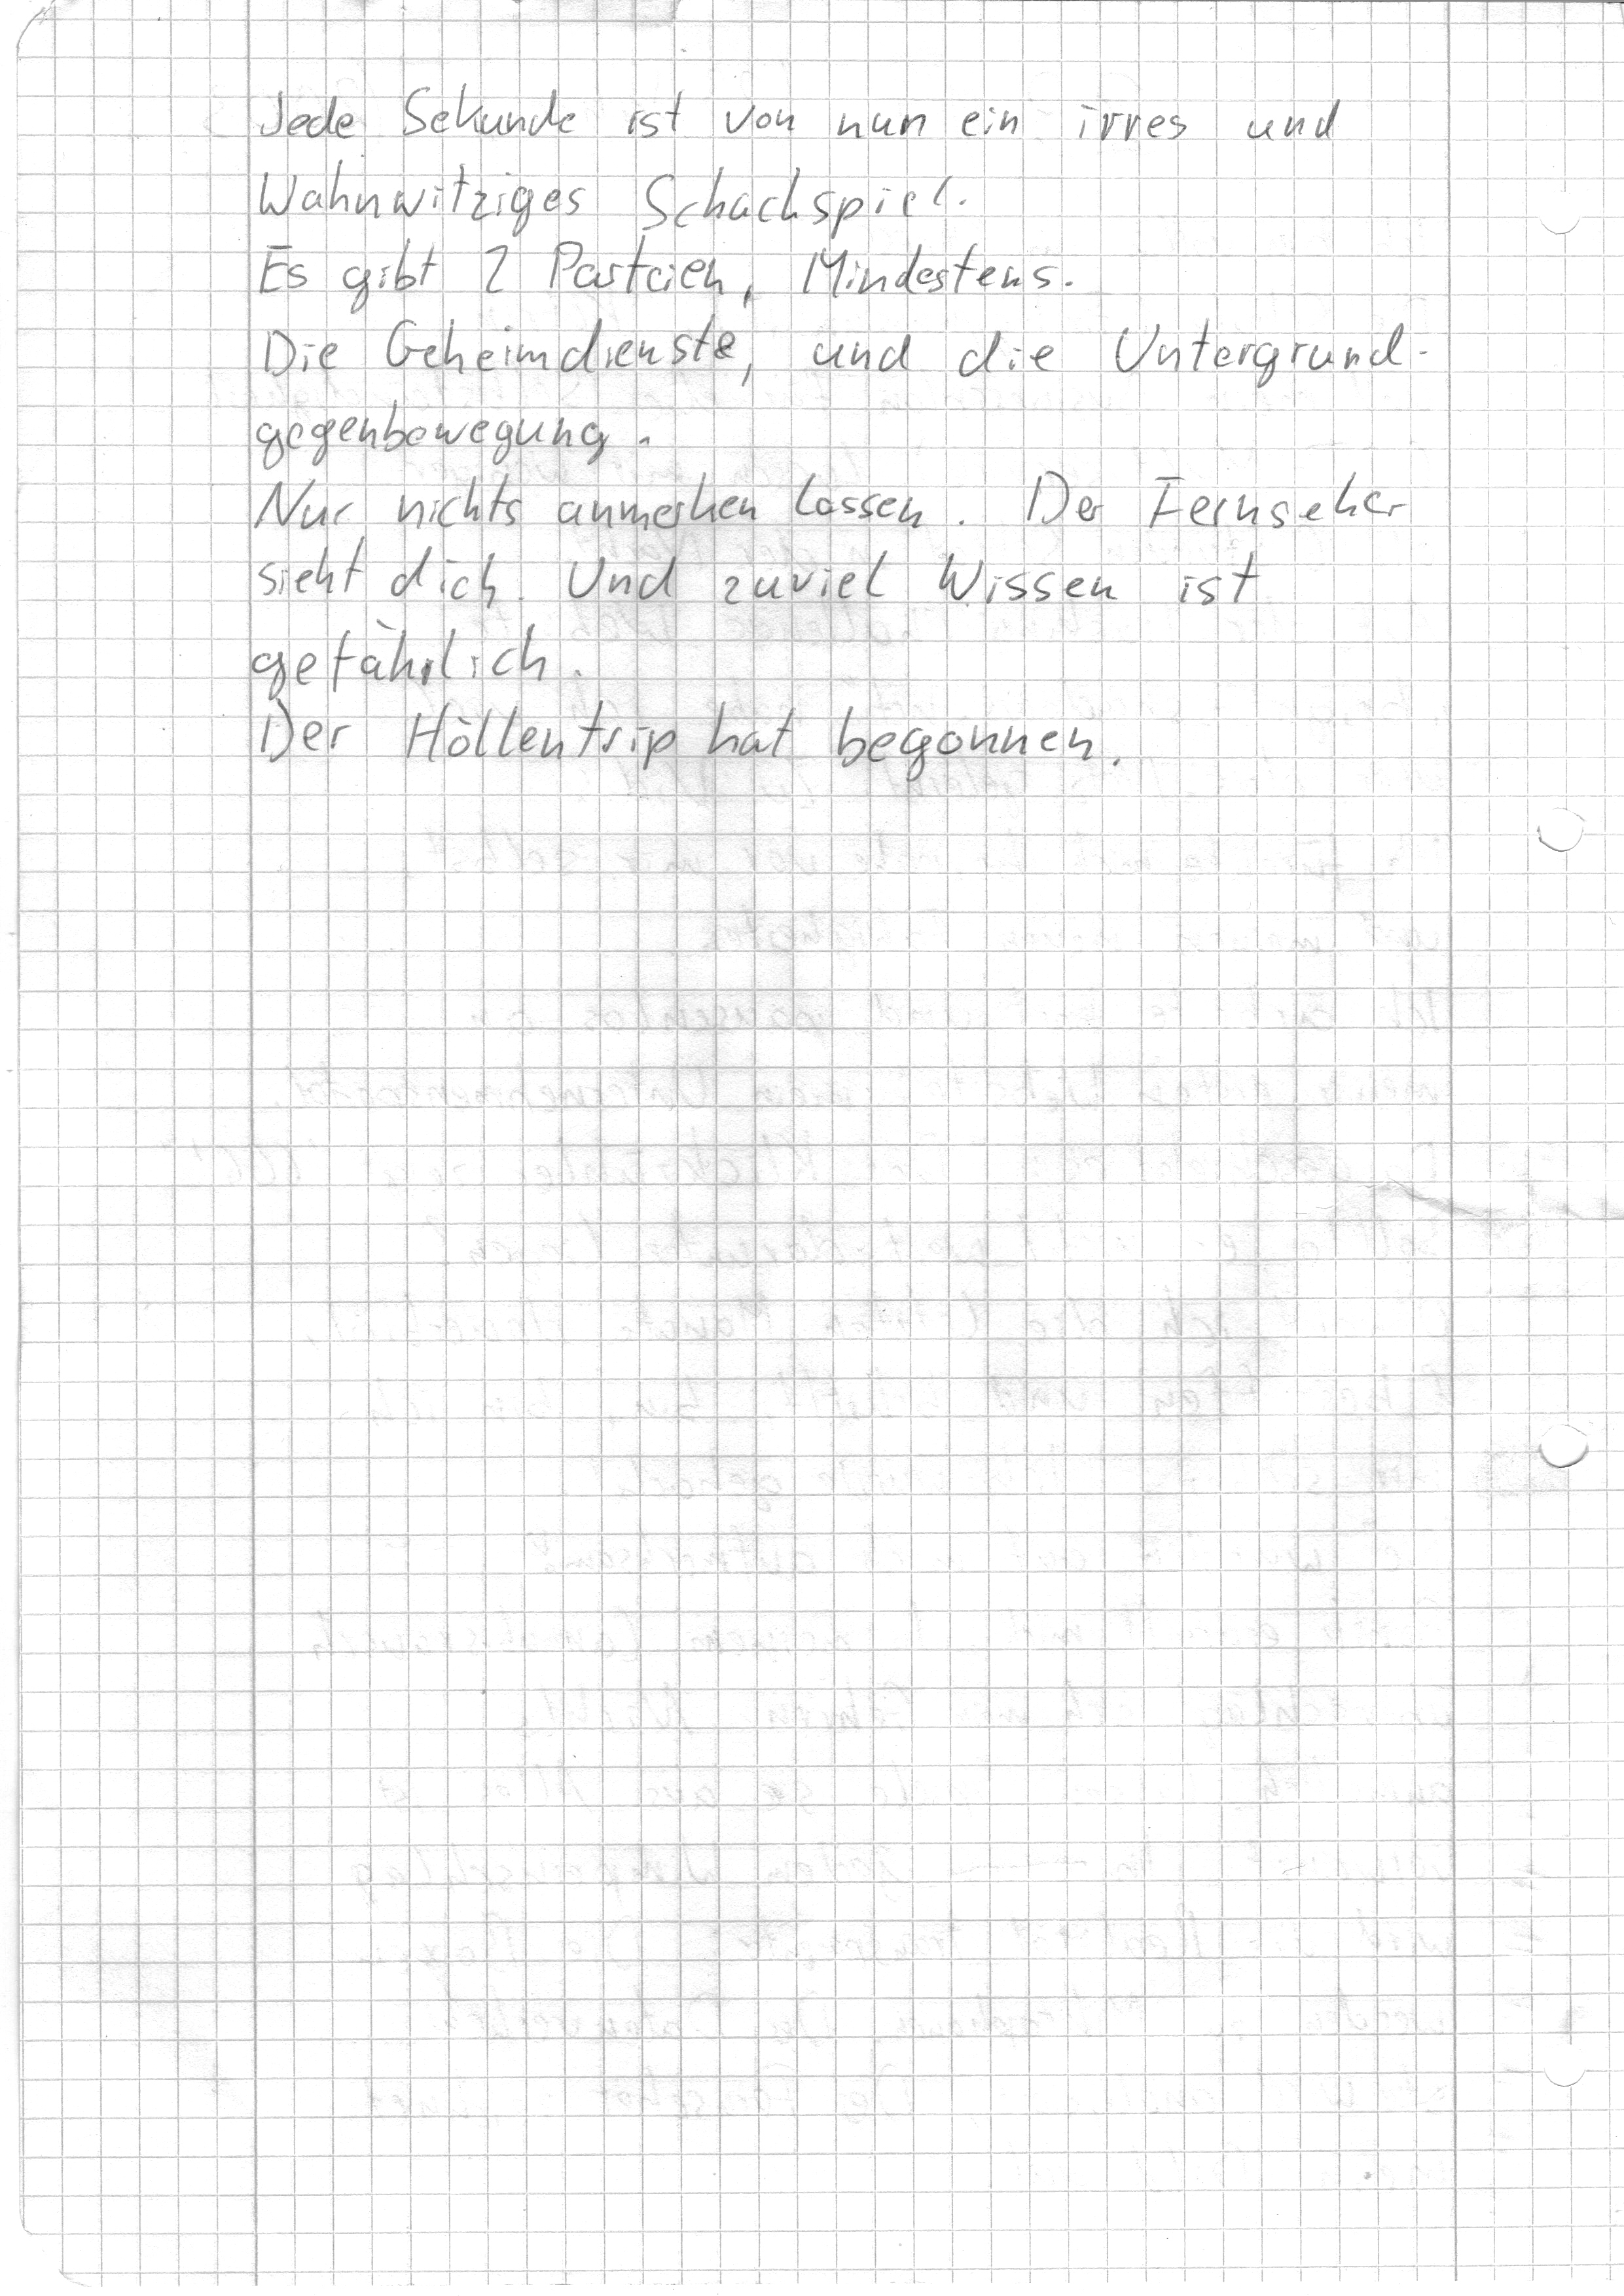 Jede Sekunde ist von nun ein irres und
Wahnwitziges Schachspiel.
Es gibt 2 Parteien, Mindestens.
Die Geheimdienste, und die Untergrund-
gegenbewegung.
Nur nichts anmerken lassen. Der Fernseher
sieht dich. Und zuviel Wissen ist
gefährlich.
Der Höllentrip hat begonnen.